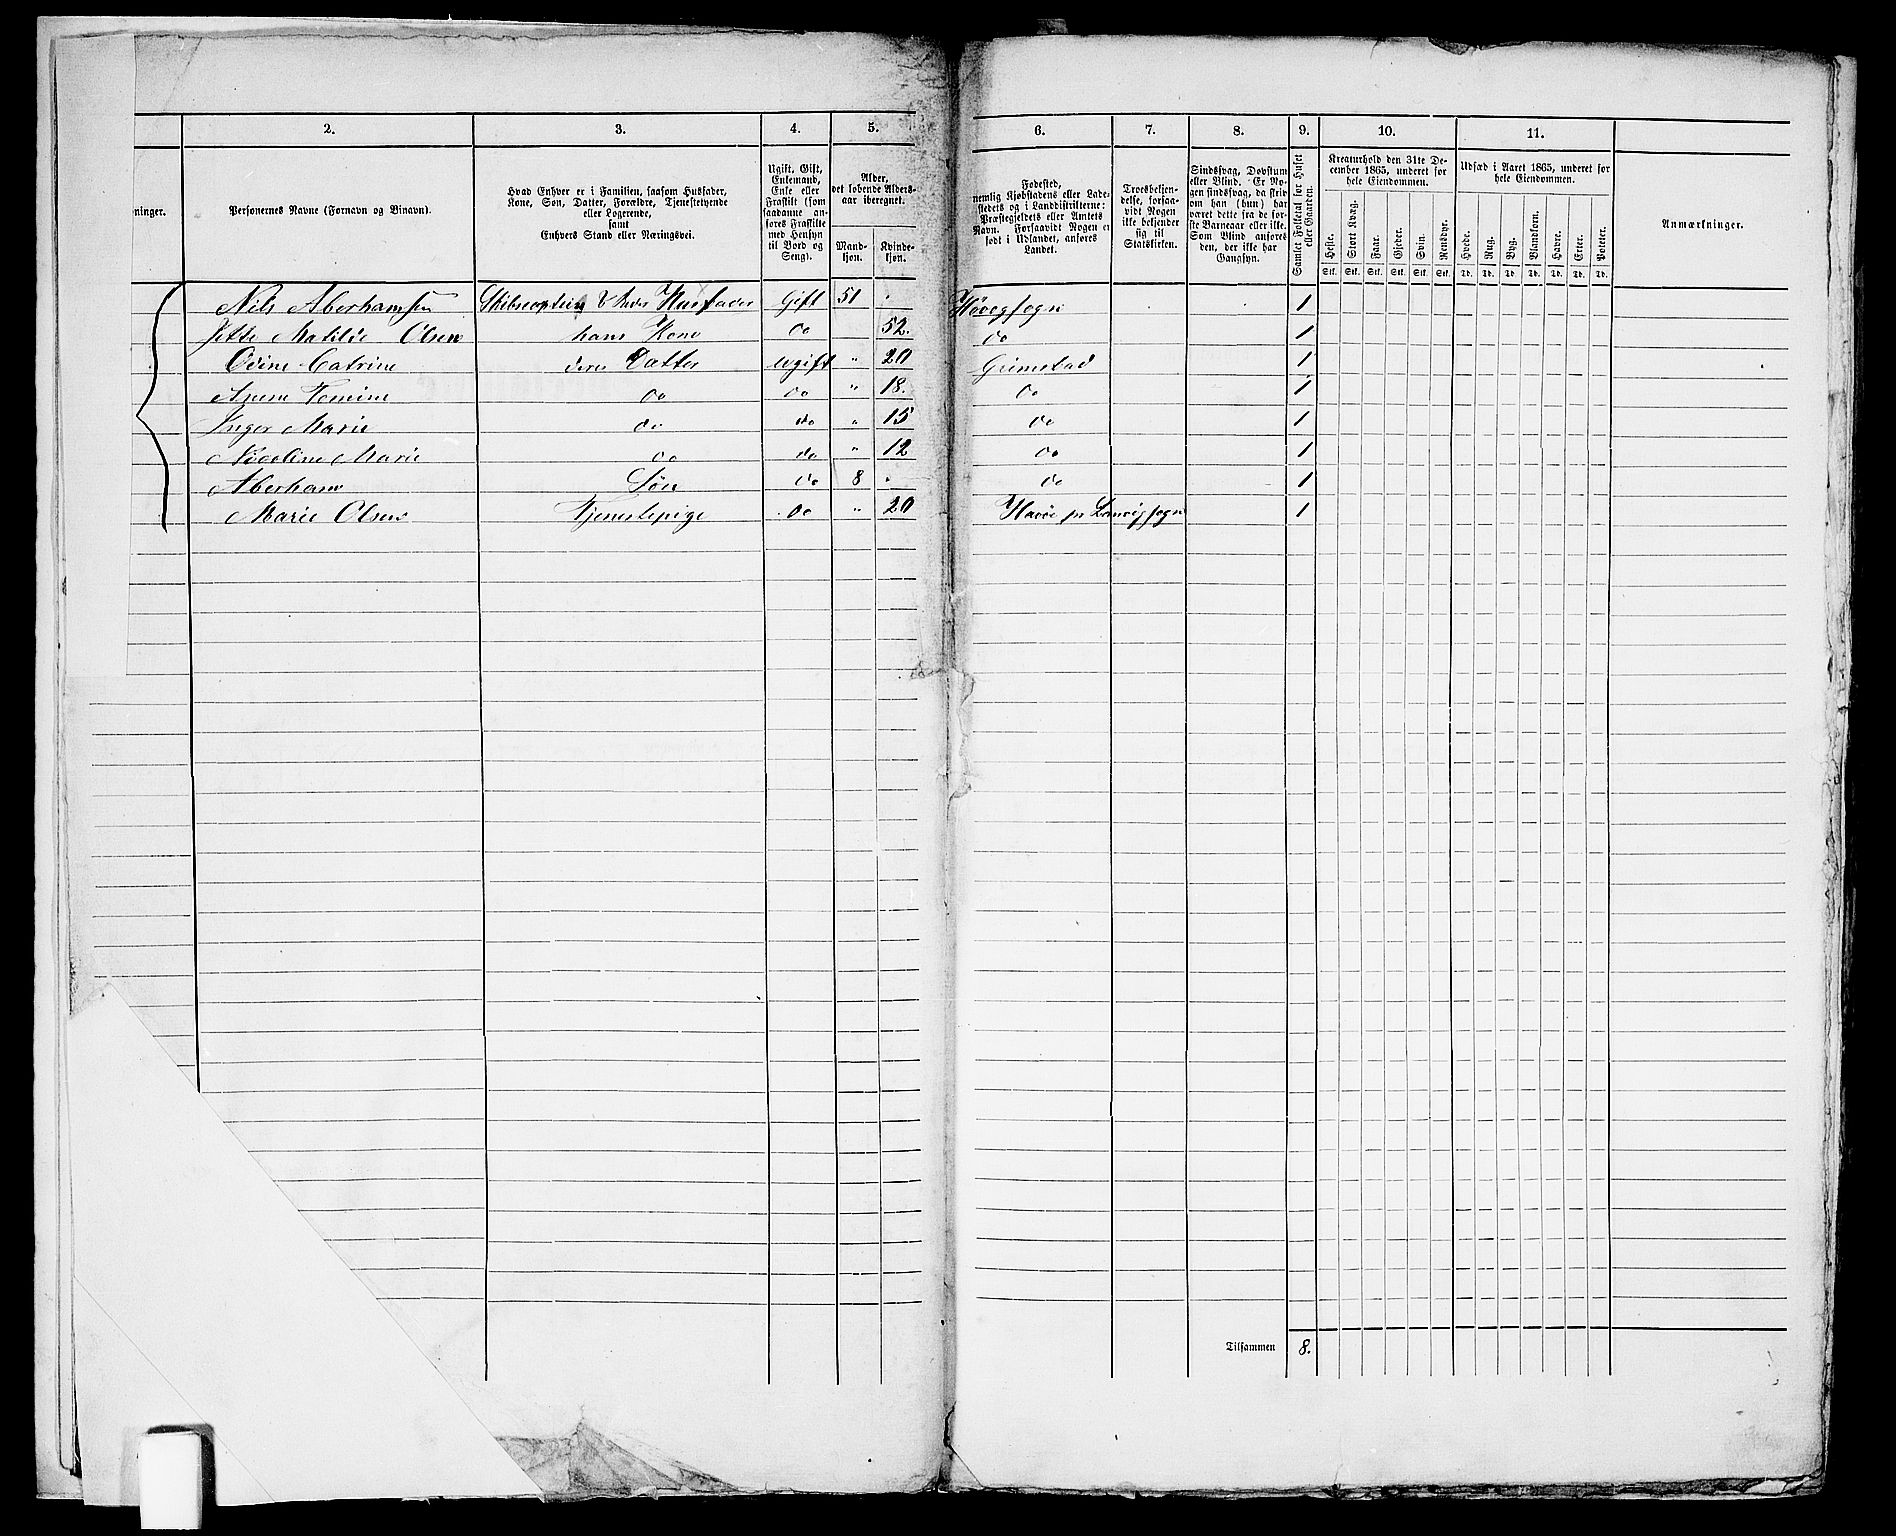 2. 3. 4. 5. 6. 7. 8. 9. 10. 11.
ninger.
Personernes Navne (Fornavn og Binavn).
Hvad Enhver er i Familien, saasom Husfader,
Kone, Søn, Datter, Forældre, Tjenestetyende
eller Logerende,
samt
Enhvers Stand eller Næringsvei.
Ugift, Gift,
Enkemand,
Enke eller
Fraskilt (som
saadanne an-
føres Fraskilte
med Hensyn
til Bord og
Seng).
Alder,
det løbende Alders-
aar iberegnet.
Mand-
kjøn.
Kvinde-
kjøn.
Fødested,
nemlig Kjøbstadens eller Lade-
stedets og i Landdistrikterne:
Præstegjeldets eller Amtets
Navn. Forsaavidt Nogen er
født i Udlandet, anføres
Landet.
Troesbekjen-
delse, forsaa-
vidt Nogen
ikke bekjender
sig til
Statskirken.
Sindssvag, Døvstum
eller Blind. Er No-
gen sindssvag, da skriv
om han (hun) har
været dette fra de før-
ste Barneaar eller ikke.
Som Blind anføres
den, der ikke har
Gangsyn.
Samlet Folketal for Huset
eller Gaarden.
Kreaturhold den 31te De-
cember 1865, underet for
hele Eiendommen.
Heste. Stort Kvæg. Faar. Gjeder. Svin. Rensdyr.
Stk. Stk. Stk. Stk. Stk. Stk.
Udsæd i Aaret 1865, underet for
hele Eiendommen.
Hvede. Rug. Byg. Blandkorn. Havre. Erter. Poteter.
Td. Td. Td. Td. Td. Td. Td.
Anmærkninger.
Nils Aberhamsen Husfader Gift 51 Høvegsogn 1
Jette Matilde Olsen hans Kone do 52. do 1
Odine Catrine deres Datter ugift " 20 Grimstad 1
do do " 18. do 1
Inger Marie do do " 15 do 1
Marie do do " 12 do 1
Aberham Søn do 8 do 1
Marie Olsen Tjenestepige do " 20 1
Tilsammen 8.